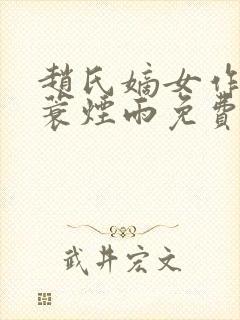 趙氏嫡女作
蓑煙雨免費
武井宏文